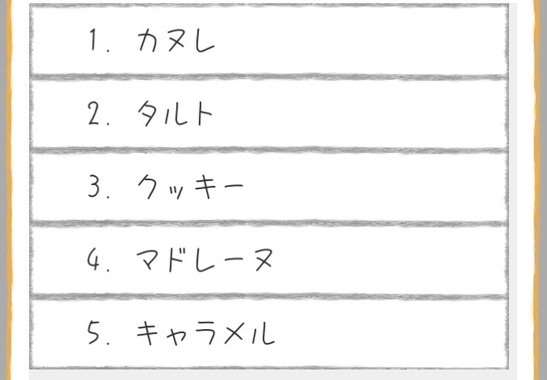 1. カヌレ
2. タルト
3. クッキー
4. マドレーヌ
5. キャラメル